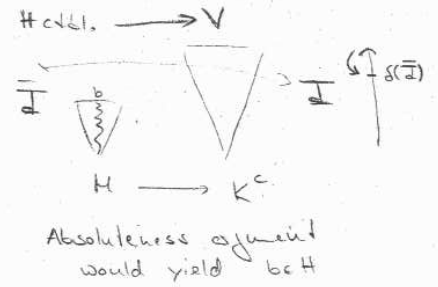 H ctbl. → V
b
H → K^c
Absoluteness argument
would yield b∈H